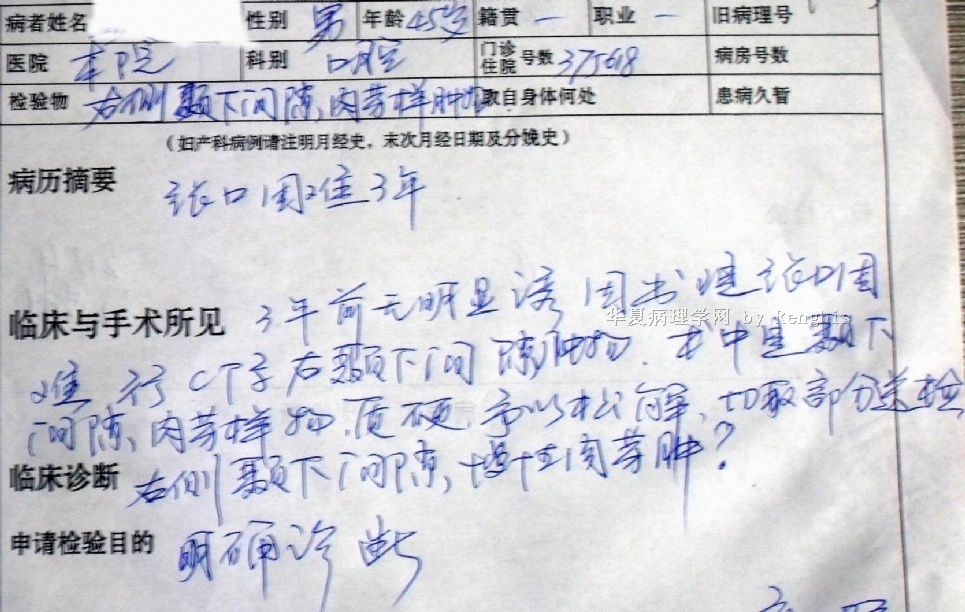 病者姓名 性别 男 年龄 45岁 籍贯 一 职业 一 旧病理号
医院 本院 科别 口腔 门诊住院号数 375618 病房号数
检验物 右侧颞下间隙肉芽样肿物 取自身体何处 患病久暂
(妇产科病例请注明月经史,末次月经日期及分娩史)
病历摘要 张口困难3年
临床与手术所见 3年前无明显诱因出现张口困
华夏病理学网 by kenghis
难,行CT示右颞下间隙肿物.术中见颞下
间隙肉芽样物,质硬,予以松解,切取部分送检
临床诊断 右侧颞下间隙,慢性肉芽肿?
申请检验目的 明确诊断